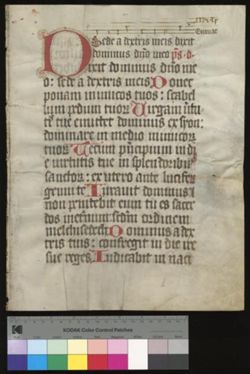 Sede a dextris meis dixit
dominus dño meo ps.
Dixit dominus dño me
o: sede a dextris meis Donec
ponam inimicos tuos: scabel
lum pedum tuor Virgam
tue emittet dominus ex syon:
dominare in medio inimicor
tuor Tecum principium in di
e virtutis tue in splendoribus
sanctor: ex utero ante lucifer
genui te Iuravit dominus
non penitebit eum tu es sacer
dos in eternum scdm ordinem
melchisedech Dominus a dex
tris tuis: confregit in die ire
sue reges Iudicabit in naci
KODAK Color Control Patches